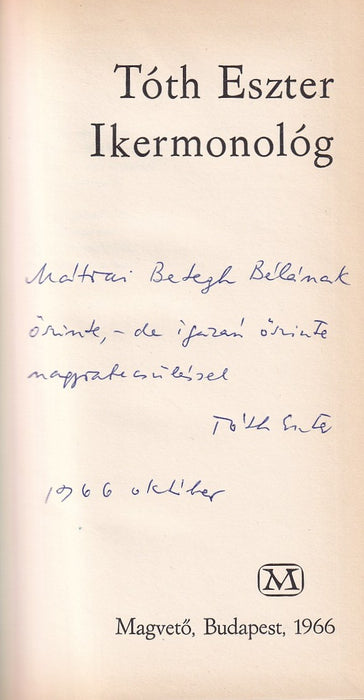 Tóth Eszter
Ikermonológ
Mátrai Betegh Bélának
őszinte, – de igazán őszinte
nagyrabecsüléssel
Tóth Eszter
1966 október
M
Magvető, Budapest, 1966